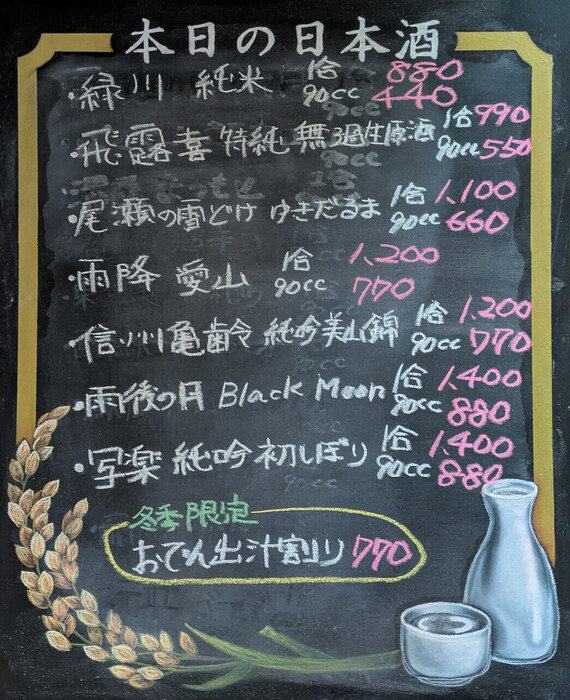 本日の日本酒
・緑川 純米 1合 880
90cc 440
・飛露喜 特純 無ろ過生原酒 1合 990
90cc 550
・尾瀬の雪どけ ゆきだるま 1合 1,100
90cc 660
・雨降 愛山 1合 1,200
90cc 770
・信州亀齢 純吟美山錦 1合 1,200
90cc 770
・雨後の月 Black Moon 1合 1,400
90cc 880
・写楽 純吟 初しぼり 1合 1,400
90cc 880
冬季限定
おでん出汁割り 770